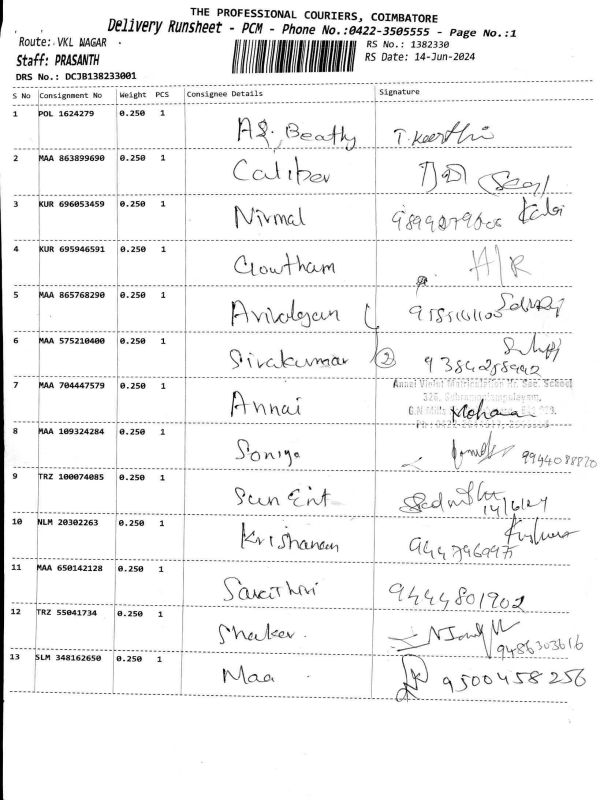 THE PROFESSIONAL COURIERS, COIMBATORE
Delivery Runsheet - PCM - Phone No.:0422-3505555 - Page No.:1
Route: VKL NAGAR
RS No.: 1382330
Staff: PRASANTH
RS Date: 14-Jun-2024
DRS No.: DCJB138233001
S No Consignment No Weight PCS Consignee Details Signature
1 POL 1624279 0.250 1 Beathy T. Keerthi
2 MAA 863899690 0.250 1 Caliber
3 KUR 696053459 0.250 1 Nirmal
4 KUR 695946591 0.250 1 Gowtham H/R
5 MAA 865768290 0.250 1
6 MAA 575210400 0.250 1 Sivakumar 2 9384288992
7 MAA 704447579 0.250 1 Annai Mohana
8 MAA 109324284 0.250 1 Soniya 9944088820
9 TRZ 100074085 0.250 1 Sun Ent 14/6/24
10 NLM 20302263 0.250 1 Krishanan
11 MAA 650142128 0.250 1 Savithri 9444801902
12 TRZ 55041734 0.250 1 Shaker 9486303616
13 SLM 348162650 0.250 1 Maa 9500458256